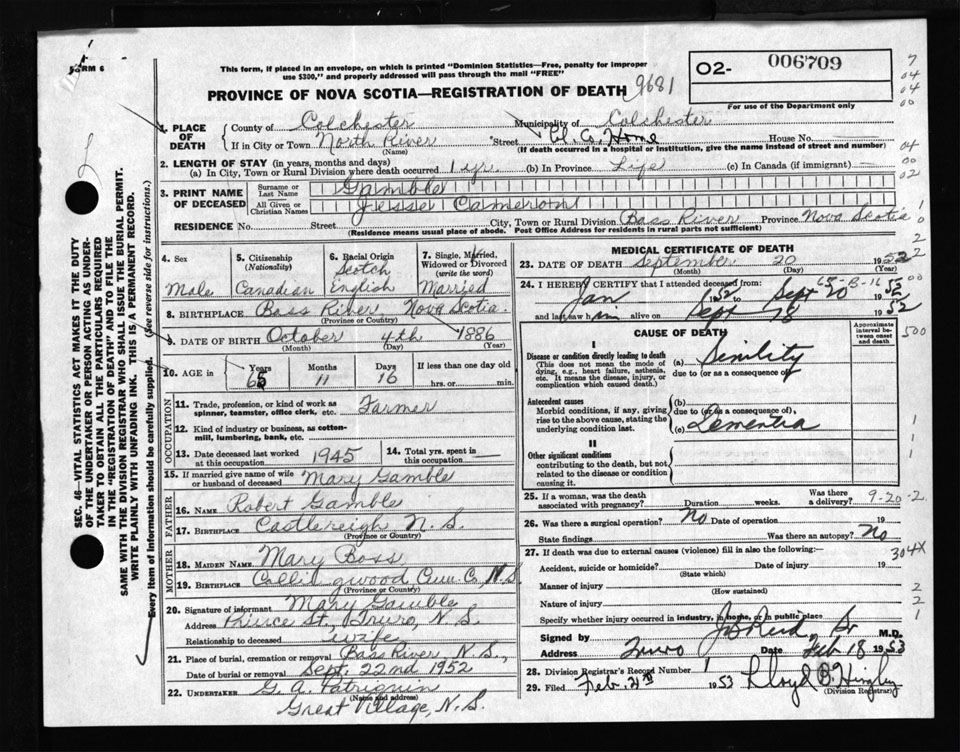 FORM 6
This form, if placed in an envelope, on which is printed "Dominion Statistics—Free, penalty for improper
use $300," and properly addressed will pass through the mail "FREE"
02- 006709
PROVINCE OF NOVA SCOTIA—REGISTRATION OF DEATH 9681
For use of the Department only
1. PLACE OF DEATH
County of Colchester Municipality of Colchester
If in City or Town North River Street Col. Co. Home House No.
(Name) (If death occurred in a hospital or institution, give the name instead of street and number)
2. LENGTH OF STAY (in years, months and days)
(a) In City, Town or Rural Division where death occurred 1 yr. (b) In Province Life (c) In Canada (if immigrant) —
3. PRINT NAME OF DECEASED
Surname or Last Name Gamble
All Given or Christian Names Jesse Cameron
RESIDENCE No. Street City, Town or Rural Division Bass River Province Nova Scotia
(Residence means usual place of abode. Post Office Address for residents in rural parts not sufficient)
4. Sex
Male
5. Citizenship (Nationality)
Canadian
6. Racial Origin
Scotch
English
7. Single, Married, Widowed or Divorced (write the word)
Married
8. BIRTHPLACE Bass River Nova Scotia.
(Province or Country)
9. DATE OF BIRTH October 4th 1886
(Month) (Day) (Year)
10. AGE in Years Months Days If less than one day
65 11 16 hrs. or min.
OCCUPATION
11. Trade, profession, or kind of work as spinner, teamster, office clerk, etc. Farmer
12. Kind of industry or business, as cotton-mill, lumbering, bank, etc.
13. Date deceased last worked at this occupation 1945
14. Total yrs. spent in this occupation
15. If married give name of wife or husband of deceased Mary Gamble
FATHER
16. NAME Robert Gamble
17. BIRTHPLACE Castlereigh N. S.
(Province or Country)
MOTHER
18. MAIDEN NAME Mary Boss
19. BIRTHPLACE Collingwood Cum. Co., N.S.
(Province or Country)
20. Signature of informant Mary Gamble
Address Prince St., Truro, N. S.
Relationship to deceased wife
21. Place of burial, cremation or removal Bass River, N. S.,
Date of burial or removal Sept. 22nd 1952
22. UNDERTAKER G. A. Patriquin
(Name and address)
Great Village, N. S.
MEDICAL CERTIFICATE OF DEATH
23. DATE OF DEATH September 20 1952
(Month) (Day) (Year)
24. I HEREBY CERTIFY that I attended deceased from
Jan 1952 to Sept 20 1952
and last saw him alive on Sept 18 1952
CAUSE OF DEATH
Approximate interval between onset and death
I
Disease or condition directly leading to death
(This does not mean the mode of dying, e.g., heart failure, asthenia, etc. It means the disease, injury, or complication which caused death.)
(a) Senility
due to (or as a consequence of)
Antecedent causes
Morbid conditions, if any, giving rise to the above cause, stating the underlying condition last.
(b)
due to (or as a consequence of),
(c) Dementia
II
Other significant conditions
contributing to the death, but not related to the disease or condition causing it.
25. If a woman, was the death associated with pregnancy? Duration weeks. Was there a delivery? 9-20-2
26. Was there a surgical operation? No Date of operation 19
State findings Was there an autopsy? No
27. If death was due to external causes (violence) fill in also the following:— 304X
Accident, suicide or homicide? Date of injury 19
(State which)
Manner of injury
(How sustained)
Nature of injury
Specify whether injury occurred in industry, in home, or in public place
Signed by J B Reid Sr M.D.
Address Truro Date Feb 18 1953
28. Division Registrar's Record Number 1
29. Filed Feb. 21st 1953 Lloyd B. Hingley
(Division Registrar)
SEC. 46—VITAL STATISTICS ACT MAKES IT THE DUTY
OF THE UNDERTAKER OR PERSON ACTING AS UNDER-
TAKER TO OBTAIN ALL THE PARTICULARS REQUIRED
IN THE "REGISTRATION OF DEATH" AND TO FILE THE
SAME WITH THE DIVISION REGISTRAR WHO SHALL ISSUE THE BURIAL PERMIT.
WRITE PLAINLY WITH UNFADING INK. THIS IS A PERMANENT RECORD.
Every item of information should be carefully supplied. (See reverse side for instructions.)